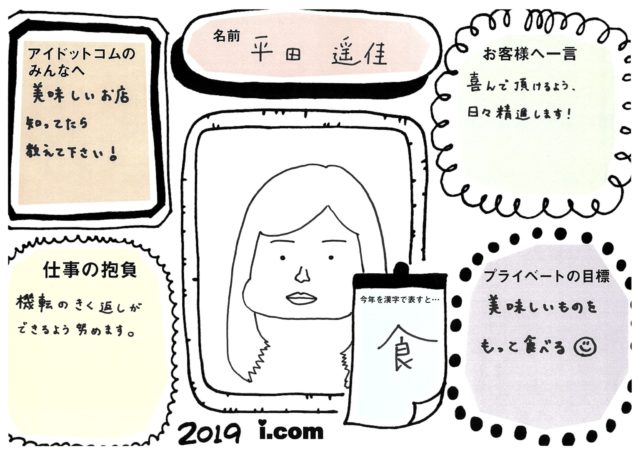 名前
平田 遥佳
アイドットコムの
みんなへ
美味しいお店
知ってたら
教えて下さい!
お客様へ一言
喜んで頂けるよう、
日々精進します!
仕事の抱負
機転のきく返しが
できるよう努めます。
今年を漢字で表すと…
食
プライベートの目標
美味しいものを
もって食べる
2019 i.com